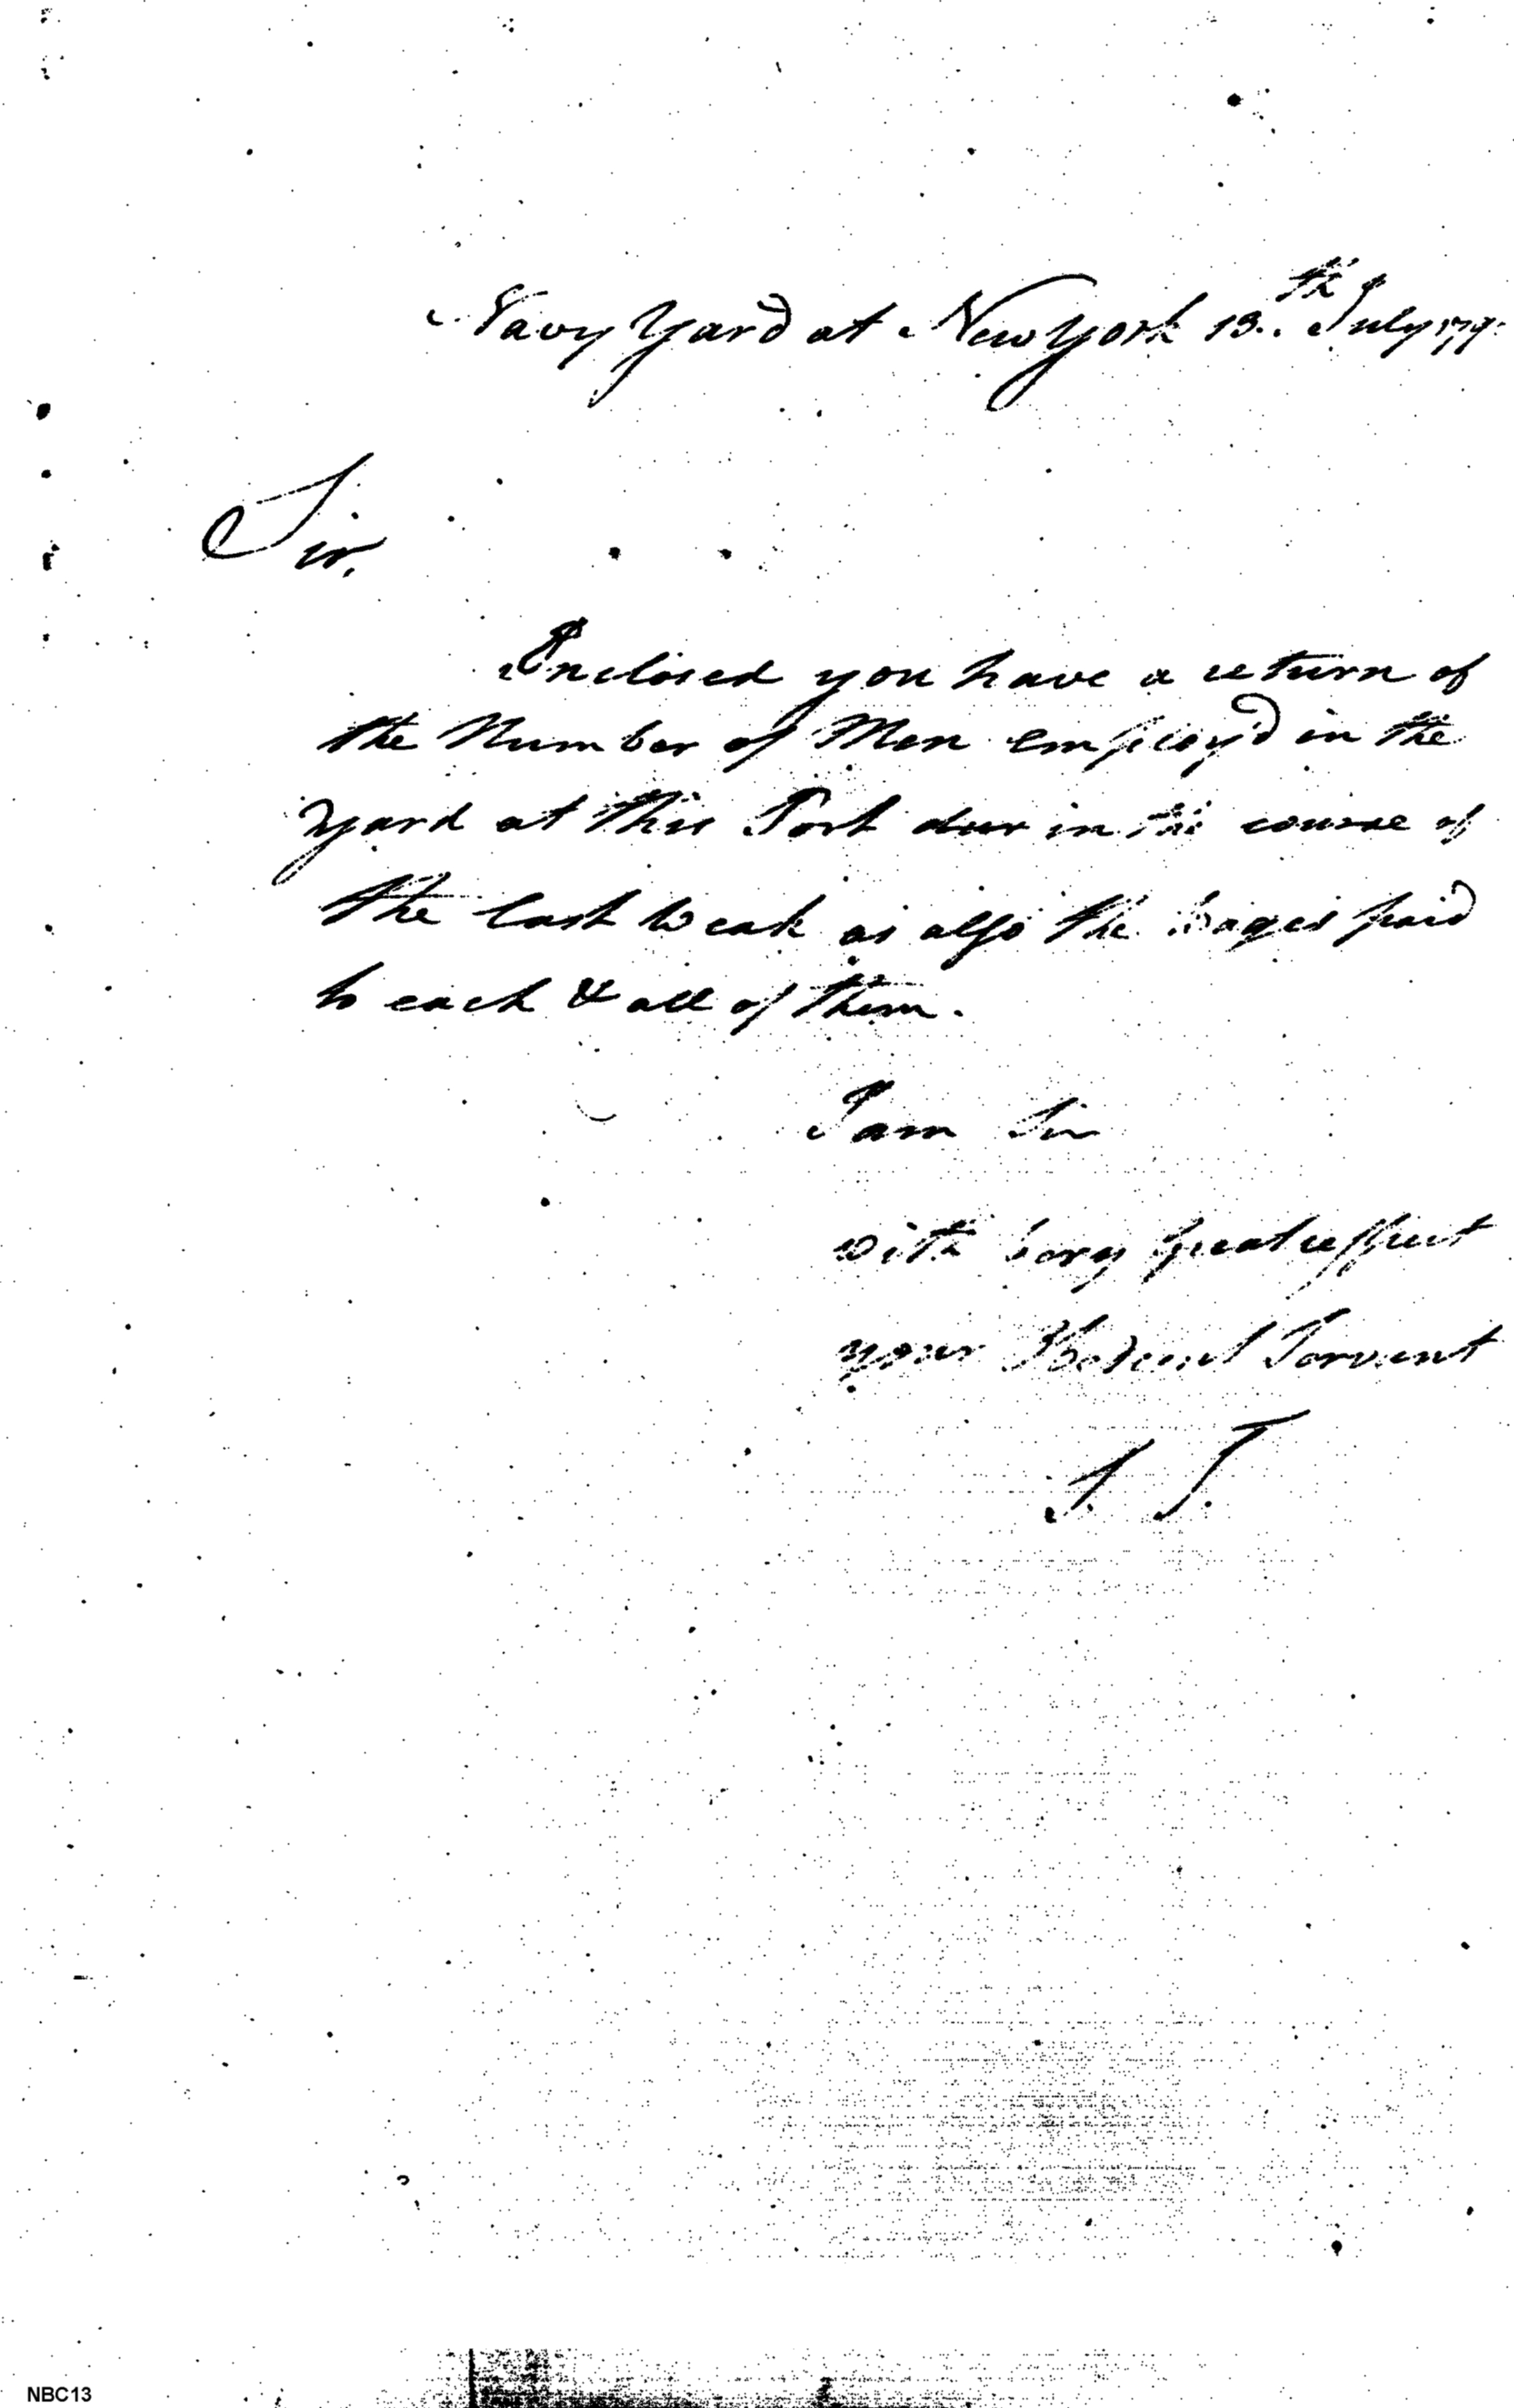 Navy Yard at New York 13th July 179
Sir,
Enclosed you have a return of
the Number of Men employ'd in the
Yard at this Port dur in the course of
the last Week as also the Wages paid
to each & all of them.
I am Sir
with very great respect
your Obedient Servant
S. T.
NBC13